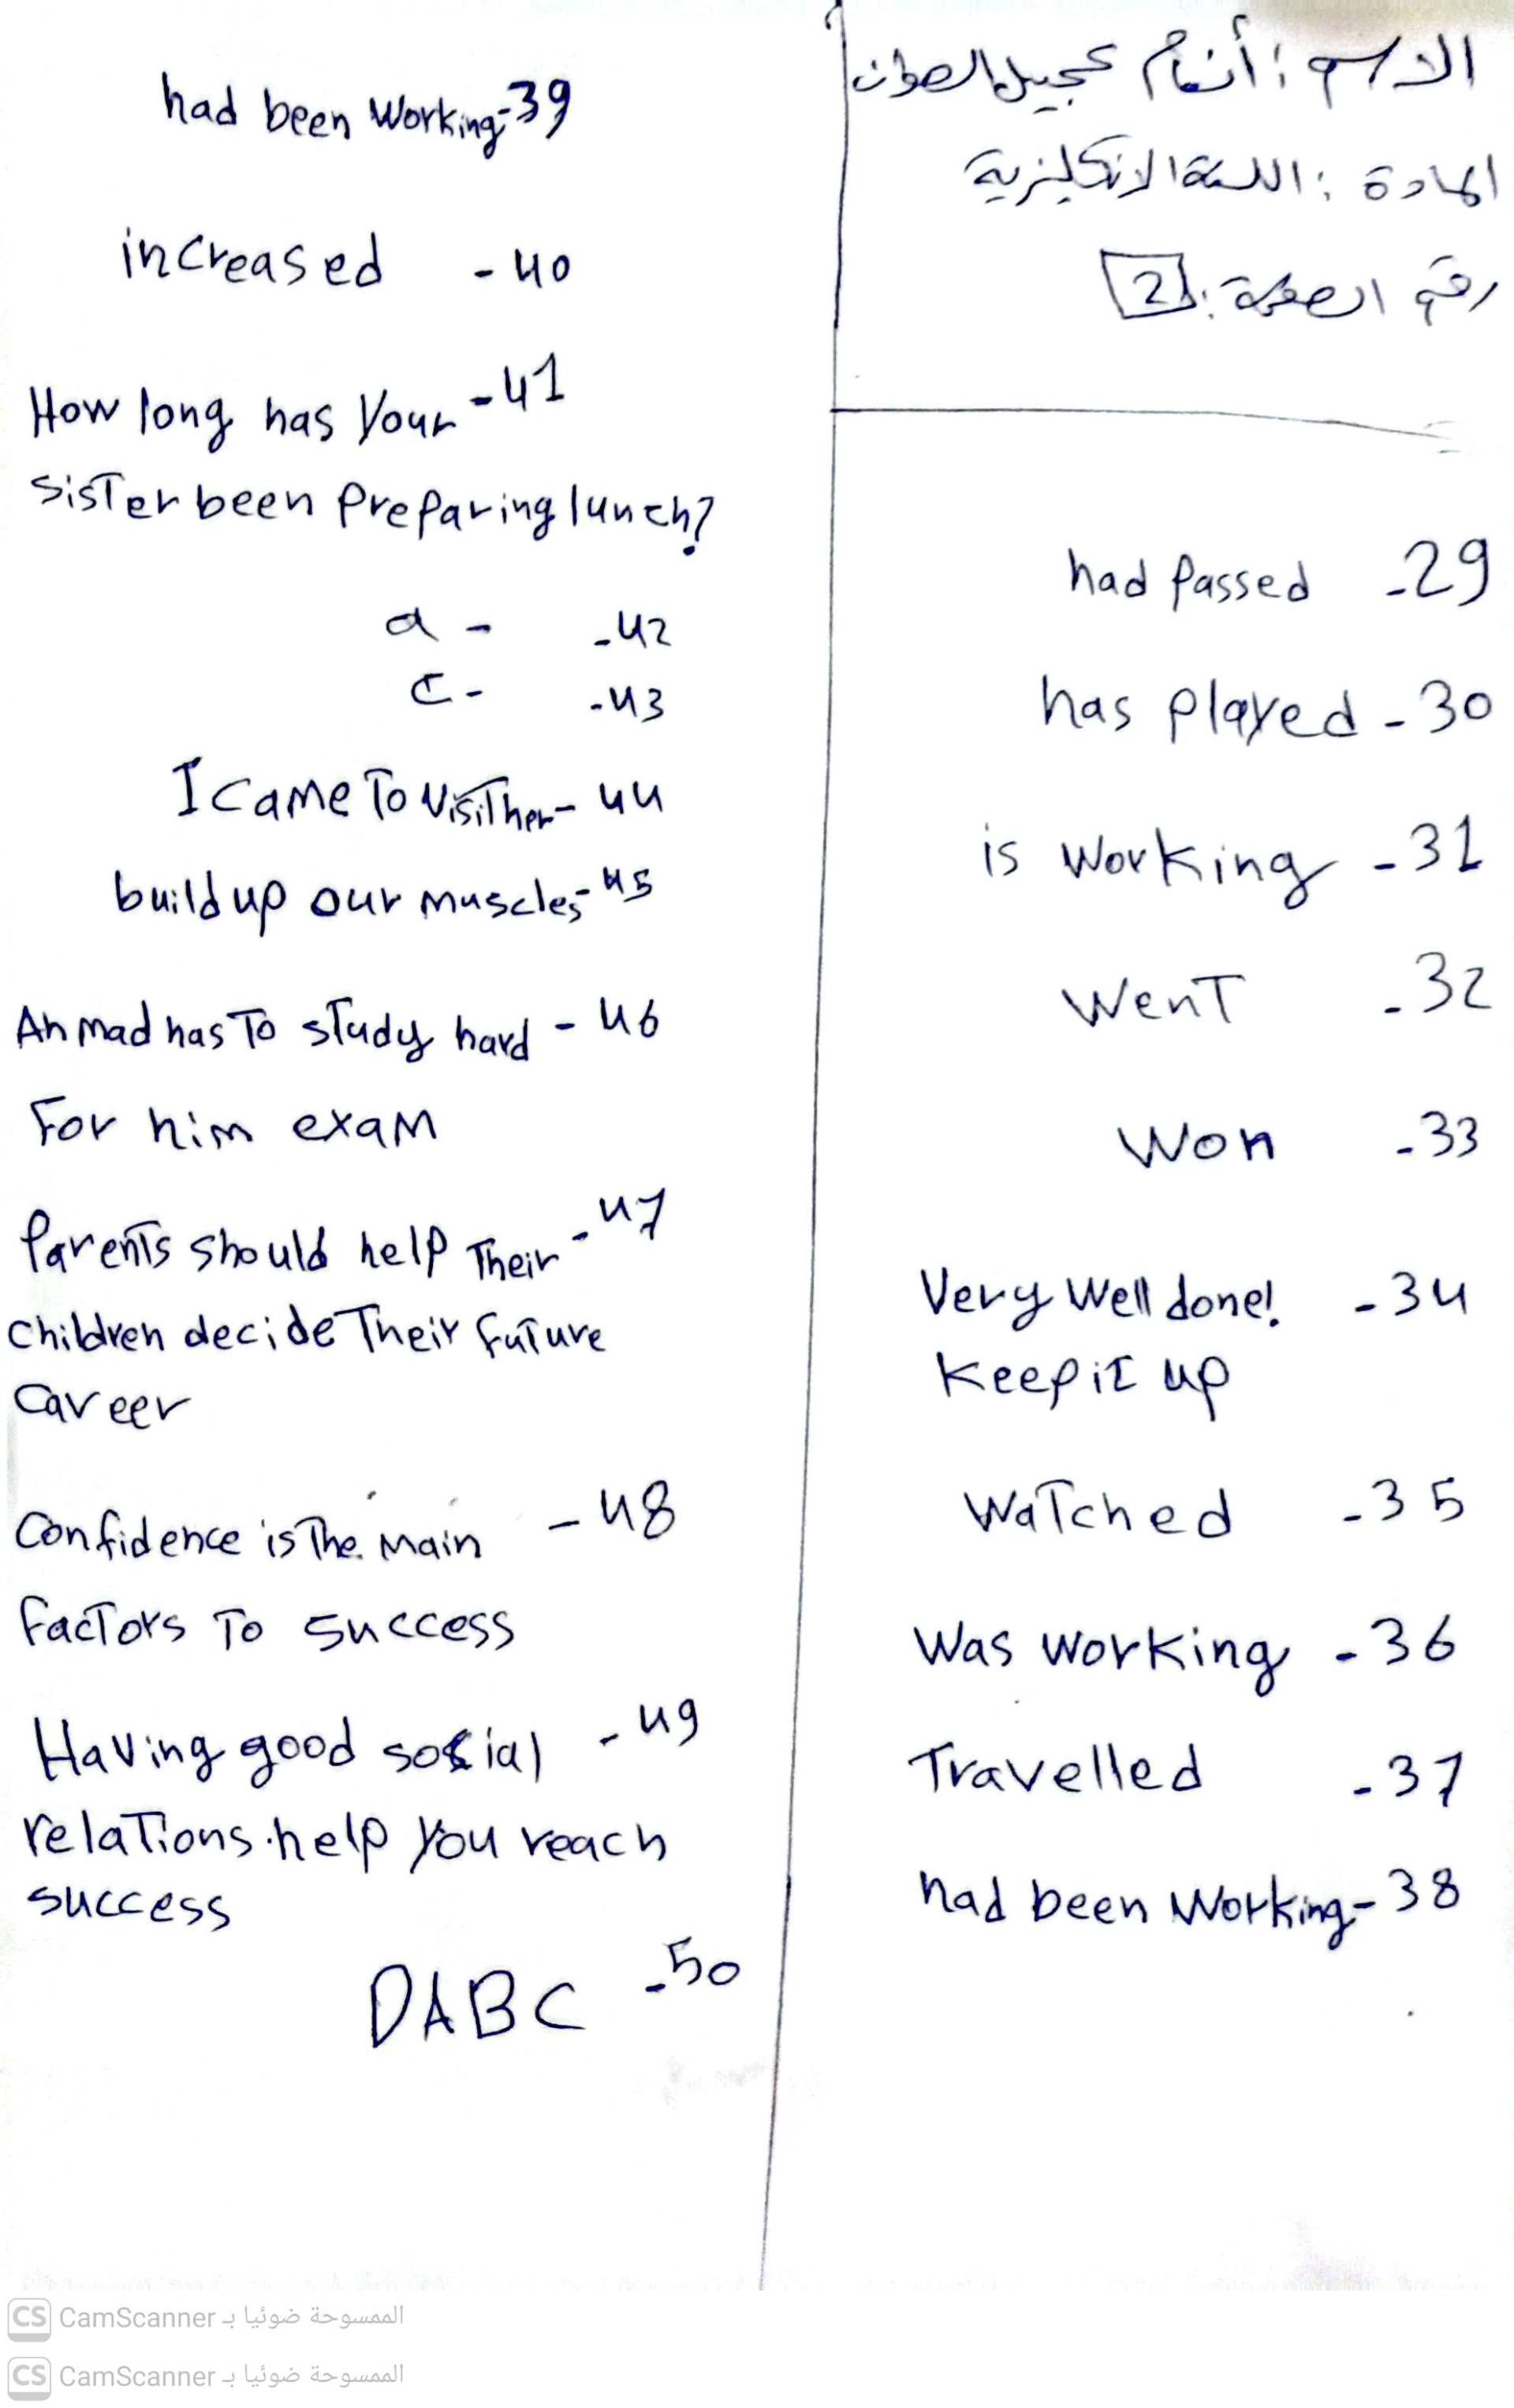 الاسم : أنسام عجيل الصوان
المادة : اللغة الانكليزية
رقم الصفحة : 2
29- had passed
30- has played
31- is working
32- went
33- won
34- Very well done!
Keep it up
35- watched
36- was working
37- Travelled
38- had been working
39- had been working
40- increased
41- How long has your
sister been preparing lunch?
42- a -
43- c -
44- I came To visit her
45- build up our muscles
46- Ahmad has To study hard
For him exam
47- Parents should help Their
children decide Their future
career
48- Confidence is The main
factors To success
49- Having good social
relations help you reach
success
50- DABC
CS CamScanner الممسوحة ضوئيا بـ
CS CamScanner الممسوحة ضوئيا بـ